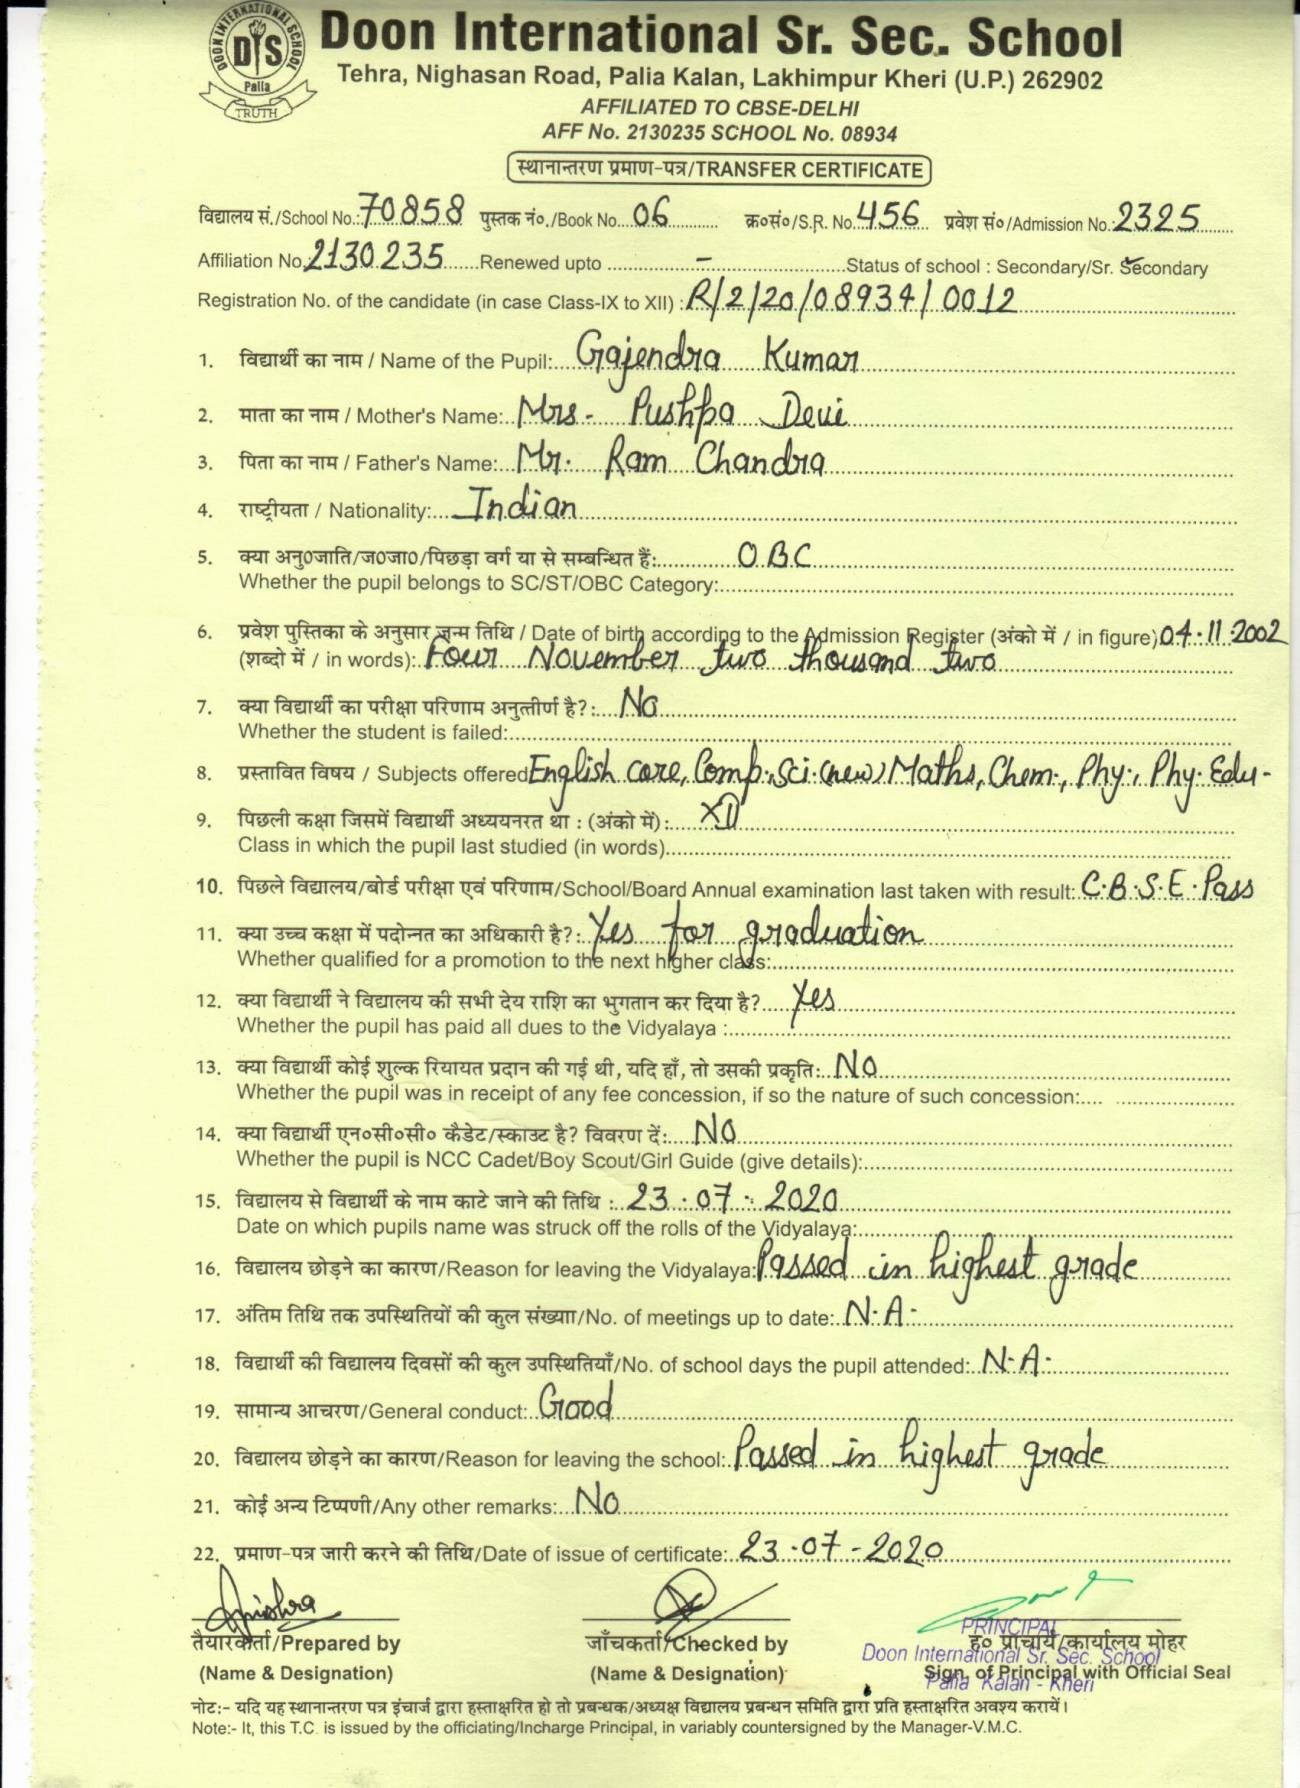 DOON INTERNATIONAL SCHOOL
DIS
Palia
TRUTH
Doon International Sr. Sec. School
Tehra, Nighasan Road, Palia Kalan, Lakhimpur Kheri (U.P.) 262902
AFFILIATED TO CBSE-DELHI
AFF No. 2130235 SCHOOL No. 08934
स्थानान्तरण प्रमाण-पत्र/TRANSFER CERTIFICATE
विद्यालय सं./School No.: 70858 पुस्तक नं०./Book No. 06 क्र०सं०/S.R. No. 456 प्रवेश सं०/Admission No.: 2325
Affiliation No. 2130235 Renewed upto - Status of school : Secondary/Sr. Secondary
Registration No. of the candidate (in case Class-IX to XII) : R/2/20/08934/0012
1. विद्यार्थी का नाम / Name of the Pupil: Gajendra Kumar
2. माता का नाम / Mother's Name: Mrs- Pushpa Devi
3. पिता का नाम / Father's Name: Mr. Ram Chandra
4. राष्ट्रीयता / Nationality: Indian
5. क्या अनु0जाति/ज0जा0/पिछड़ा वर्ग या से सम्बन्धित हैं: OBC
Whether the pupil belongs to SC/ST/OBC Category:
6. प्रवेश पुस्तिका के अनुसार जन्म तिथि / Date of birth according to the Admission Register (अंको में / in figure) 04.11.2002
(शब्दो में / in words): Four November two thousand two
7. क्या विद्यार्थी का परीक्षा परिणाम अनुत्तीर्ण है?: No
Whether the student is failed:
8. प्रस्तावित विषय / Subjects offered English core, Comp. Sci. (new) Maths, Chem., Phy., Phy. Edu-
9. पिछली कक्षा जिसमें विद्यार्थी अध्ययनरत था : (अंको में): XII
Class in which the pupil last studied (in words)
10. पिछले विद्यालय/बोर्ड परीक्षा एवं परिणाम/School/Board Annual examination last taken with result: C.B.S.E. Pass
11. क्या उच्च कक्षा में पदोन्नत का अधिकारी है?: Yes for graduation
Whether qualified for a promotion to the next higher class:
12. क्या विद्यार्थी ने विद्यालय की सभी देय राशि का भुगतान कर दिया है? Yes
Whether the pupil has paid all dues to the Vidyalaya :
13. क्या विद्यार्थी कोई शुल्क रियायत प्रदान की गई थी, यदि हाँ, तो उसकी प्रकृति: NO
Whether the pupil was in receipt of any fee concession, if so the nature of such concession:
14. क्या विद्यार्थी एन०सी०सी० कैडेट/स्काउट है? विवरण दें: NO
Whether the pupil is NCC Cadet/Boy Scout/Girl Guide (give details):
15. विद्यालय से विद्यार्थी के नाम काटे जाने की तिथि : 23.07.2020
Date on which pupils name was struck off the rolls of the Vidyalaya:
16. विद्यालय छोड़ने का कारण/Reason for leaving the Vidyalaya: Passed in highest grade
17. अंतिम तिथि तक उपस्थितियों की कुल संख्या/No. of meetings up to date: N.A.
18. विद्यार्थी की विद्यालय दिवसों की कुल उपस्थितियाँ/No. of school days the pupil attended: N.A.
19. सामान्य आचरण/General conduct: Good
20. विद्यालय छोड़ने का कारण/Reason for leaving the school: Passed in highest grade
21. कोई अन्य टिप्पणी/Any other remarks: No
22. प्रमाण-पत्र जारी करने की तिथि/Date of issue of certificate: 23.07-2020
तैयारकर्ता/Prepared by जाँचकर्ता/Checked by ह० प्राचार्य/कार्यालय मोहर
(Name & Designation) (Name & Designation) Sign. of Principal with Official Seal
PRINCIPAL
Doon International Sr. Sec. School
Palia Kalan - Kheri
नोट:- यदि यह स्थानान्तरण पत्र इंचार्ज द्वारा हस्ताक्षरित हो तो प्रबन्धक/अध्यक्ष विद्यालय प्रबन्धन समिति द्वारा प्रति हस्ताक्षरित अवश्य करायें।
Note:- It, this T.C. is issued by the officiating/Incharge Principal, in variably countersigned by the Manager-V.M.C.